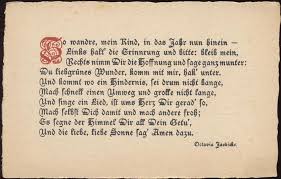 So wandre, mein Kind, in das Jahr nun hinein —
Links halt' die Erinnrung und bitte: bleib mein,
Rechts nimm Dir die Hoffnung und sage ganz munter:
Du liebgrünes Wunder, komm mit mir, halt' unter.
Und kommt wo ein Hindernis, sei drum nicht bange,
Mach schnell einen Umweg und grolle nicht lange,
Und singe ein Lied, ist ums Herz Dir gerad' so,
Mach selbst Dich damit und mach andre froh;
Es segne der Himmel Dir all Dein Getu',
Und die liebe, liebe Sonne sag' Amen dazu.
Octavia